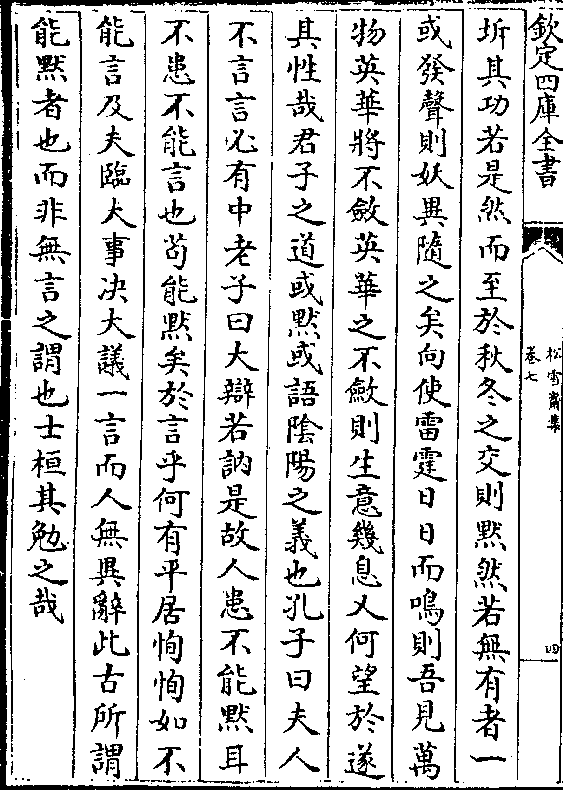 欽定四庫全書
松雪齋集
卷七
四
坼其功若是然而至於秋冬之交則黙然若無有者一
或發聲則妖異隨之矣向使雷霆日日而鳴則吾見萬
物英華將不斂英華之不斂則生意幾息乂何望於遂
其性哉君子之道或黙或語隂陽之義也孔子曰夫人
不言言必有中老子曰大辯若訥是故人患不能黙耳
不患不能言也苟能黙矣於言乎何有平居恂恂如不
能言及夫臨大事决大議一言而人無異辭此古所謂
能黙者也而非無言之謂也士桓其勉之哉